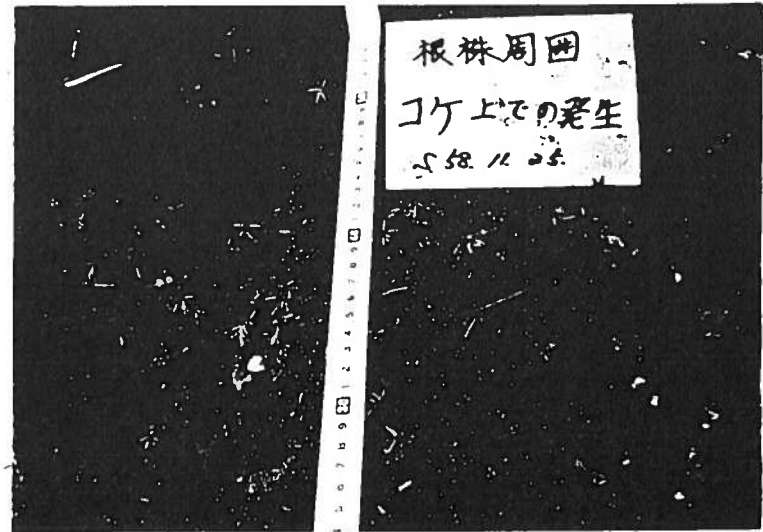 根株周囲
コケ上での発生
S 58. 11. 25.